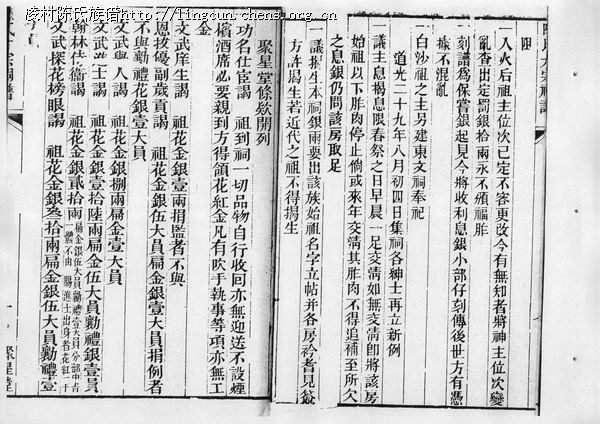 凌村陈氏族谱http://lingcun.chens.org.cn
一入火后祖主位次已定不容更改今有無知者將神主位次變
亂查出定罰銀拾兩永不頒福胙
一刻譜爲保嘗銀起見今將收利息銀小部仔刻傳後世方有憑
據不混亂
一白沙祖之主另建東文祠奉祀
道光二十九年八月初四日集祠各紳士再立新例
一議主息揭息限春祭之日早晨一足交清如無交清即將該房
始祖以下胙肉停止倘或來年交清其胙肉不得追補至所欠
之息銀仍問該房取足
一議揭生本祠銀兩要出該族始祖名字立帖并各房衿耆見簽
方許揭生若近代之祖不得揭生
聚星堂條欵開列
功名仕宦謁 祖到祠一切品物自行收回亦無迎送不設煙
檳酒席必要親到方得領花紅金凡有吹手執事等項亦無工
金
文武庠生謁 祖花金銀壹兩捐監者不與
恩拔優副歲貢謁 祖花金銀伍大員扁金銀壹大員捐例者
不與勷禮花銀壹大員
文武舉人謁 祖花金銀捌兩扁金壹大員
文武進士謁 祖花金銀壹拾陸兩扁金伍大員勷禮銀壹員
翰林侍衛謁 祖花金銀貳拾兩
文武探花榜眼謁 祖花金銀叁拾兩扁金銀伍大員勷禮壹
聚星堂